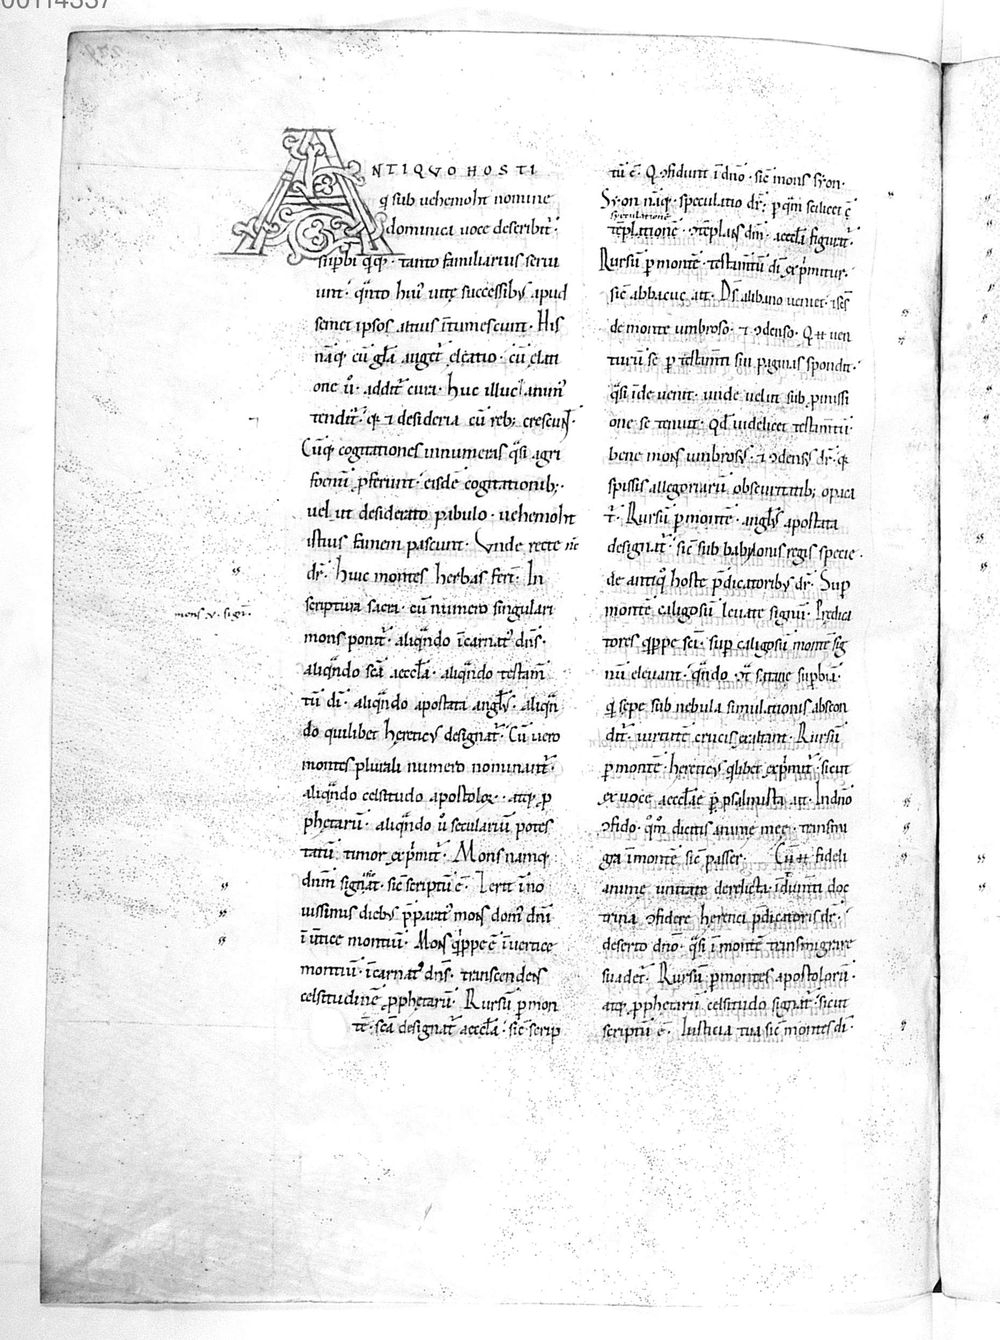 00114337
ANTIQVO HOSTI
q sub uehemoht nomine
dominica uoce describit̄·
sup̄bi q̄q;· tanto familiarius serui
unt· q̄nto hui᾽ uitę successib; apud
semet ipsos altius ītumescunt· His
nāq; cū gl̄a auget᾽ elatio· cū elati
one ū· addit᾽ cura· huc illuc anim᾽
tendit᾽· q; ⁊ desideria cū reb; crescunt·
Cūq; cogitationes innumeras q̄si agri
foenū p̄ferunt· eisdē cogitationib;·
uel ut desiderato pabulo· uehemoht
istius famem pascunt· Vnde recte n̄c
dr̄· huic montes herbas fert̄· In
scriptura sacra· cū numero singulari
mons ponit᾽· aliq̄ndo īcarnat᾽ dn̄s·
aliq̄ndo sc̄a aeccl̄a· aliq̄ndo testam̄
tū dī· aliq̄ndo apostata angl̄s· aliq̄n
do quilibet hereticus designat᾽· Cū uero
montes plurali numero nominant᾽·
aliq̄ndo celsitudo apostoloꝝ· atq; p
phetarū· aliq̄ndo ū seculariū potes
tatū timor exp̄mit᾽· Mons namq;
dn̄m signat· sic̄ scriptū ē· Erit ī no
uissimis dieb; p̄parat᾽ mons dom᾽ dn̄i
ī ūtice montiū· Mons q̄ppe ē ī uertice
montiū· īcarnat᾽ dn̄s· transcendens
celsitudinē p̄phetarū· Rursū p mon
tē· sc̄a designat᾽ aeccl̄a· sic̄ scrip
mons · v · sigt̄·
tū ē· Q ꝯfidunt ī dn̄o· sic̄ mons syon·
Syon nāq; speculatio dr̄· p q̄m scilicet ē
speculationē
tēplationē· ꝯtēplans dm̄· aeccl̄a figurat᾽·
Rursū p montē· testam̄tū dī exp̄mitur·
sic̄ abbacuc ait· Ds̄ a libano ueniet· ⁊ sc̄s
de monte umbroso· ⁊ ꝯdenso· Q ⁊ uen
turū se p testam̄ti sui paginas spondit·
q̄si īde uenit· unde uelut sub p̄missi
one se tenuit· Qd̄ uidelicet testam̄tū
bene mons umbrosus· ⁊ ꝯdensus dr̄· q;
spissis allegoriarū obscuritatib; opaca
t᾽· Rursū p montē· angl̄s apostata
designat᾽· sic̄ sub babylonis regis specie·
de antiq̄ hoste p̄dicatorib; dr̄· Sup
montē caligosū leuate signū· Predica
tores q̄ppe sc̄i· sup caligosū montē sig
nū eleuant· q̄ndo ꝯt̄ satane supbiā·
q̄ sepe sub nebula simulationis abscon
dit᾽· uirtutē crucis exaltant· Rursū
p montē· hereticus q̄libet exp̄mit᾽· sicut
ex uoce aeccl̄ae p psalmista ait· In dn̄o
ꝯfido· q̄m̄ dicitis anime mee· transmi
gra ī montē sic̄ passer· Cū ⁊ fideli
anime unitate derelicta· ī dūm̄ti doc
trina ꝯfidere heretici p̄dicatoris dr̄·
deserto dn̄o· q̄si ī montē transmigrare
suadet᾽· Rursū p montes apostolorū·
atq; p̄phetarū celsitudo signat᾽· sicut
scriptū ē· Iusticia tua sic̄ montes dī·